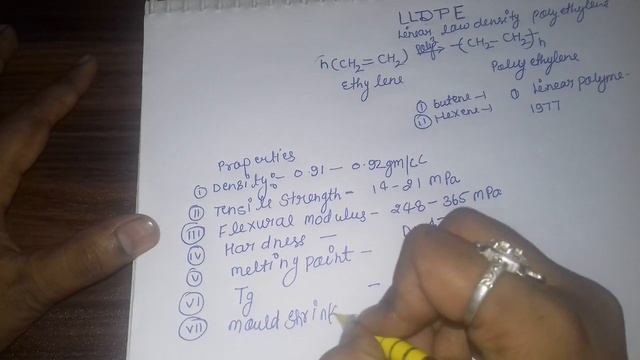 LLDPE
Linear law density polyethylene
n(CH₂=CH₂) polyⁿ → -(CH₂-CH₂)n
Ethylene
Polyethylene
① butene-1
① Linear polyme-
ⓘⓘ Hexene-1
1977
Properties
ⓘ Density:- 0.91 - 0.92gm/cc
ⓘⓘ Tensile Strength - 14-21 MPa
ⓘⓘⓘ Flexural modulus - 248-365 MPa
ⓘⓥ Hardness -
ⓥ melting paint -
ⓥⓘ Tg -
ⓥⓘⓘ mould shrink